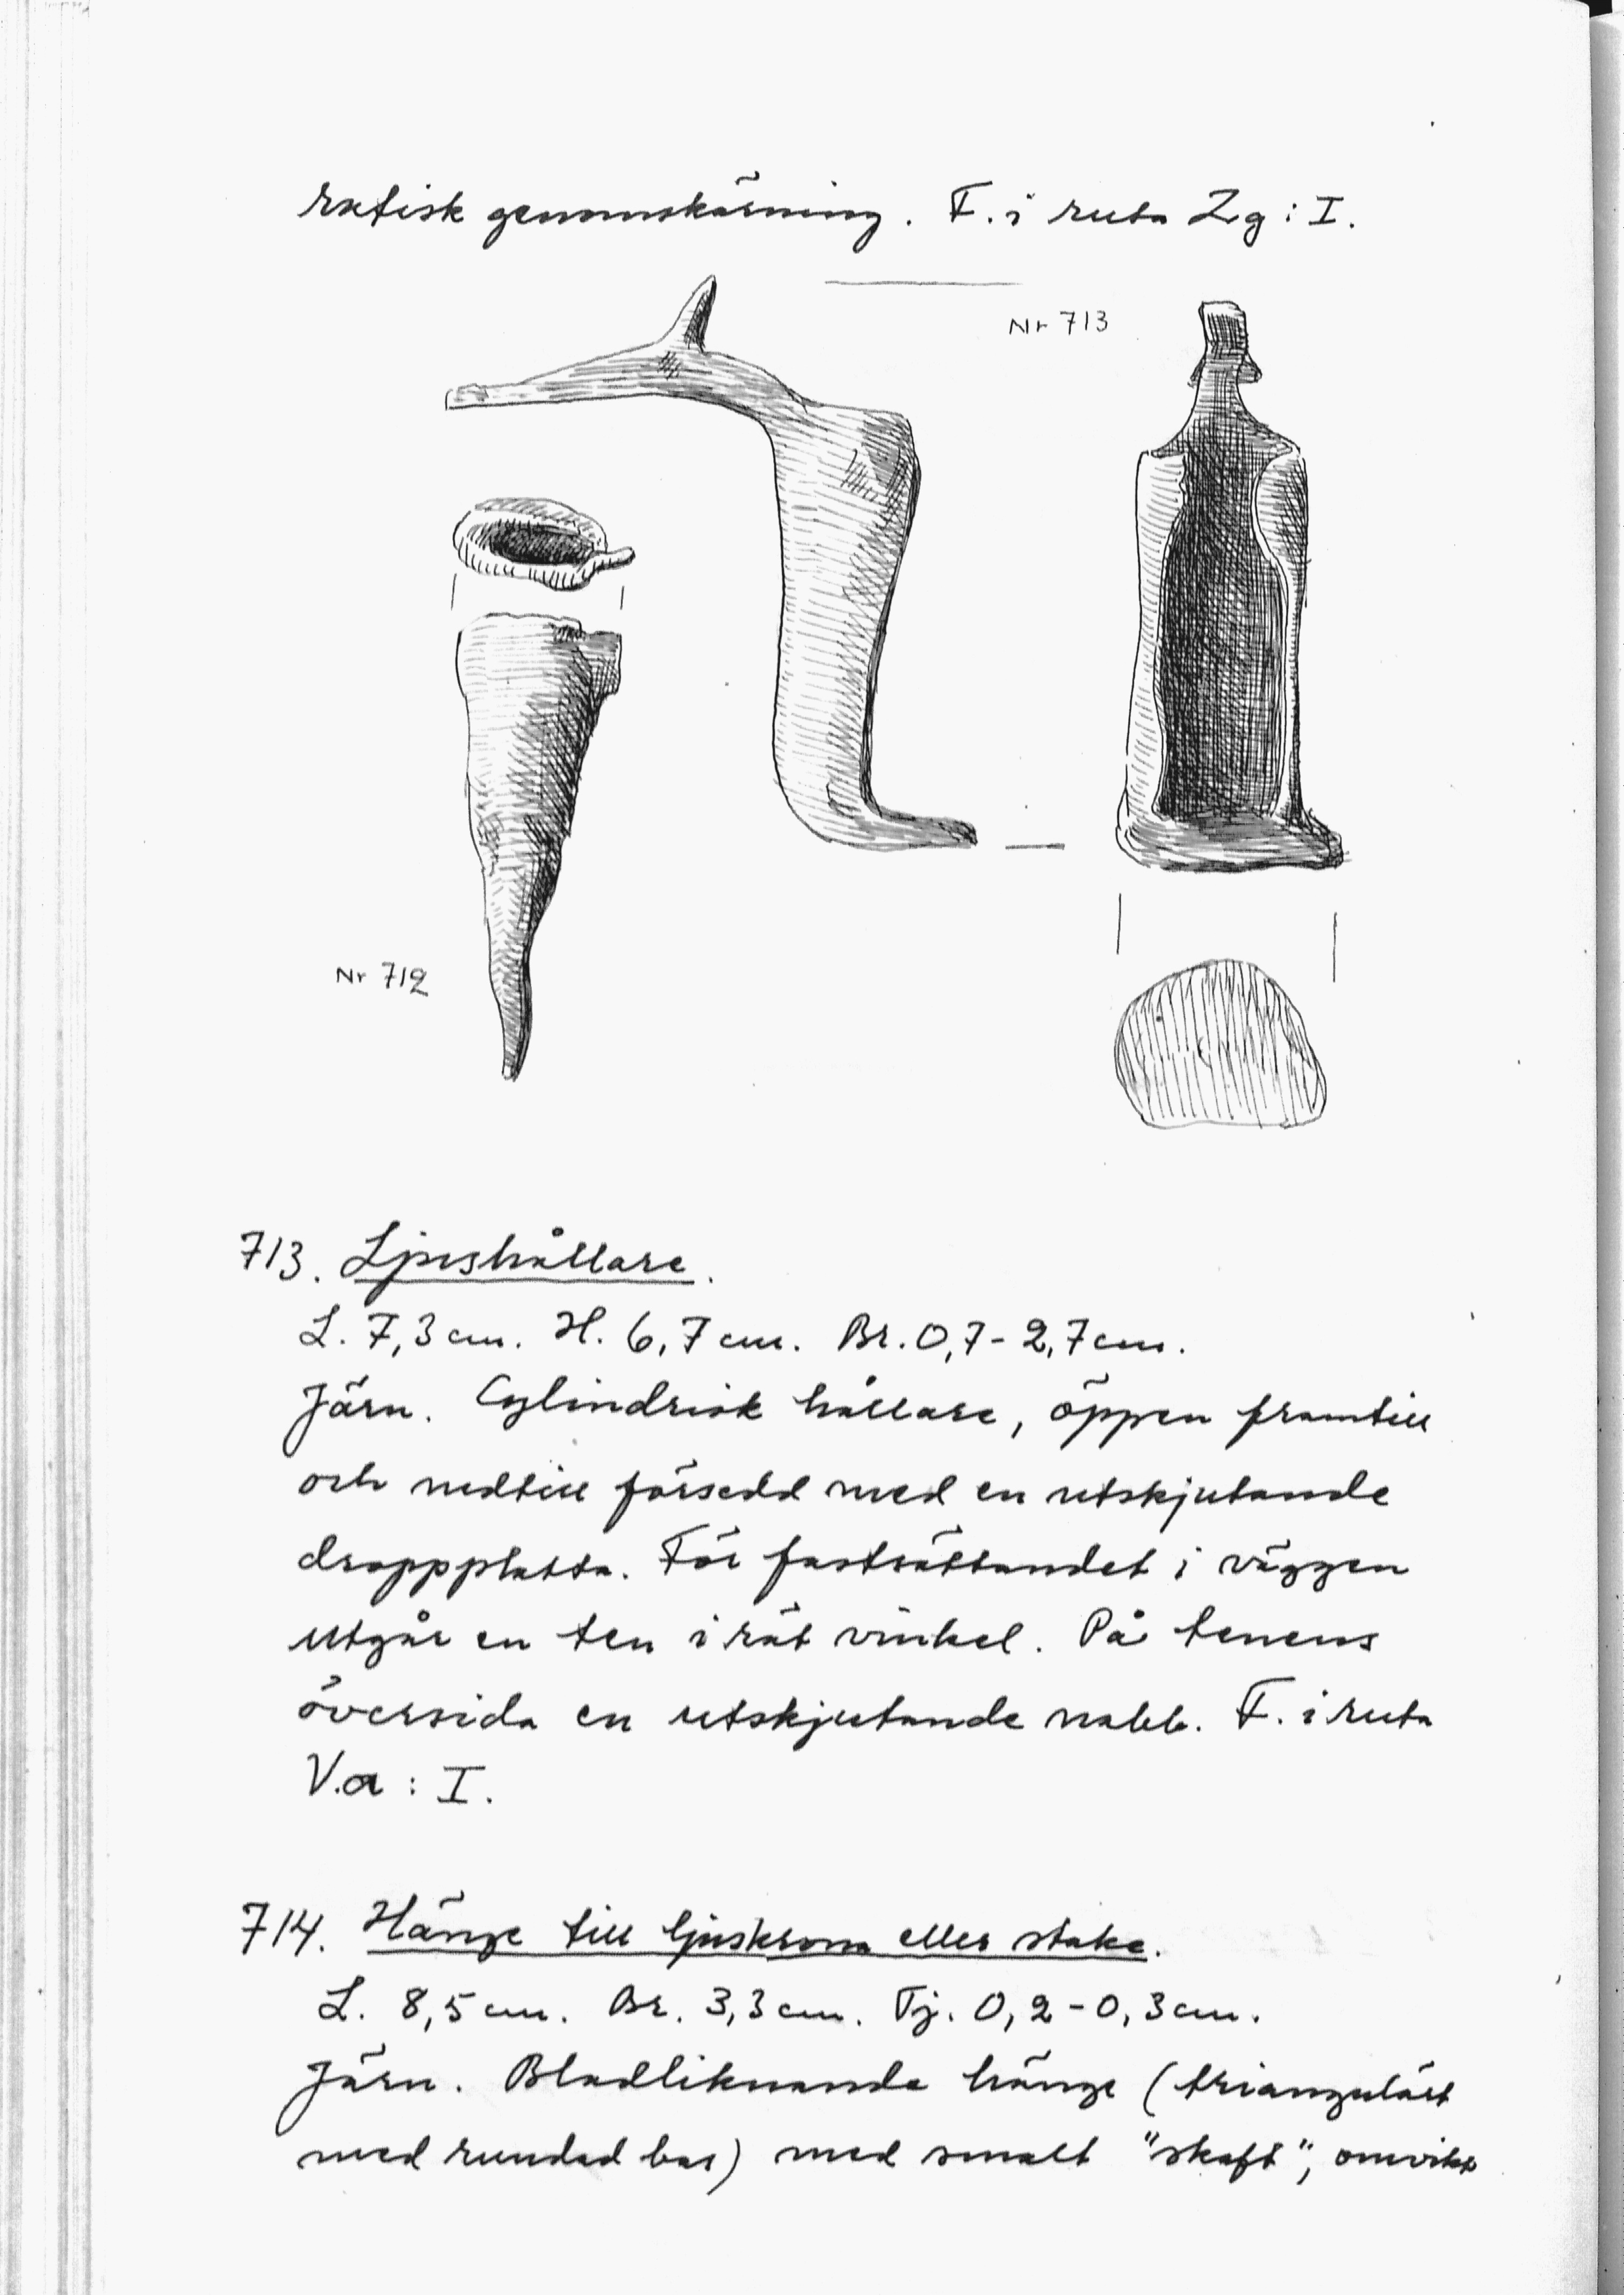 ratisk genomskärning. F. i ruta Zg : I.
Nr 713
Nr 712
713. Ljushållare.
L. 7,3 cm. H. 6,7 cm. Br. 0,7 - 2,7 cm.
Järn. Cylindrisk hållare, öppen framtill
och nedtill försedd med en utskjutande
droppplatta. För fastsättandet i väggen
utgår en ten i rät vinkel. På tenens
översida en utskjutande nabb. F. i ruta
V.a : I.
714. Hänge till ljuskrona eller stake.
L. 8,5 cm. Br. 3,3 cm. Tj. 0,2 - 0,3 cm.
Järn. Bladliknande hänge (triangulärt
med rundad bas) med smalt "skaft", omvikt